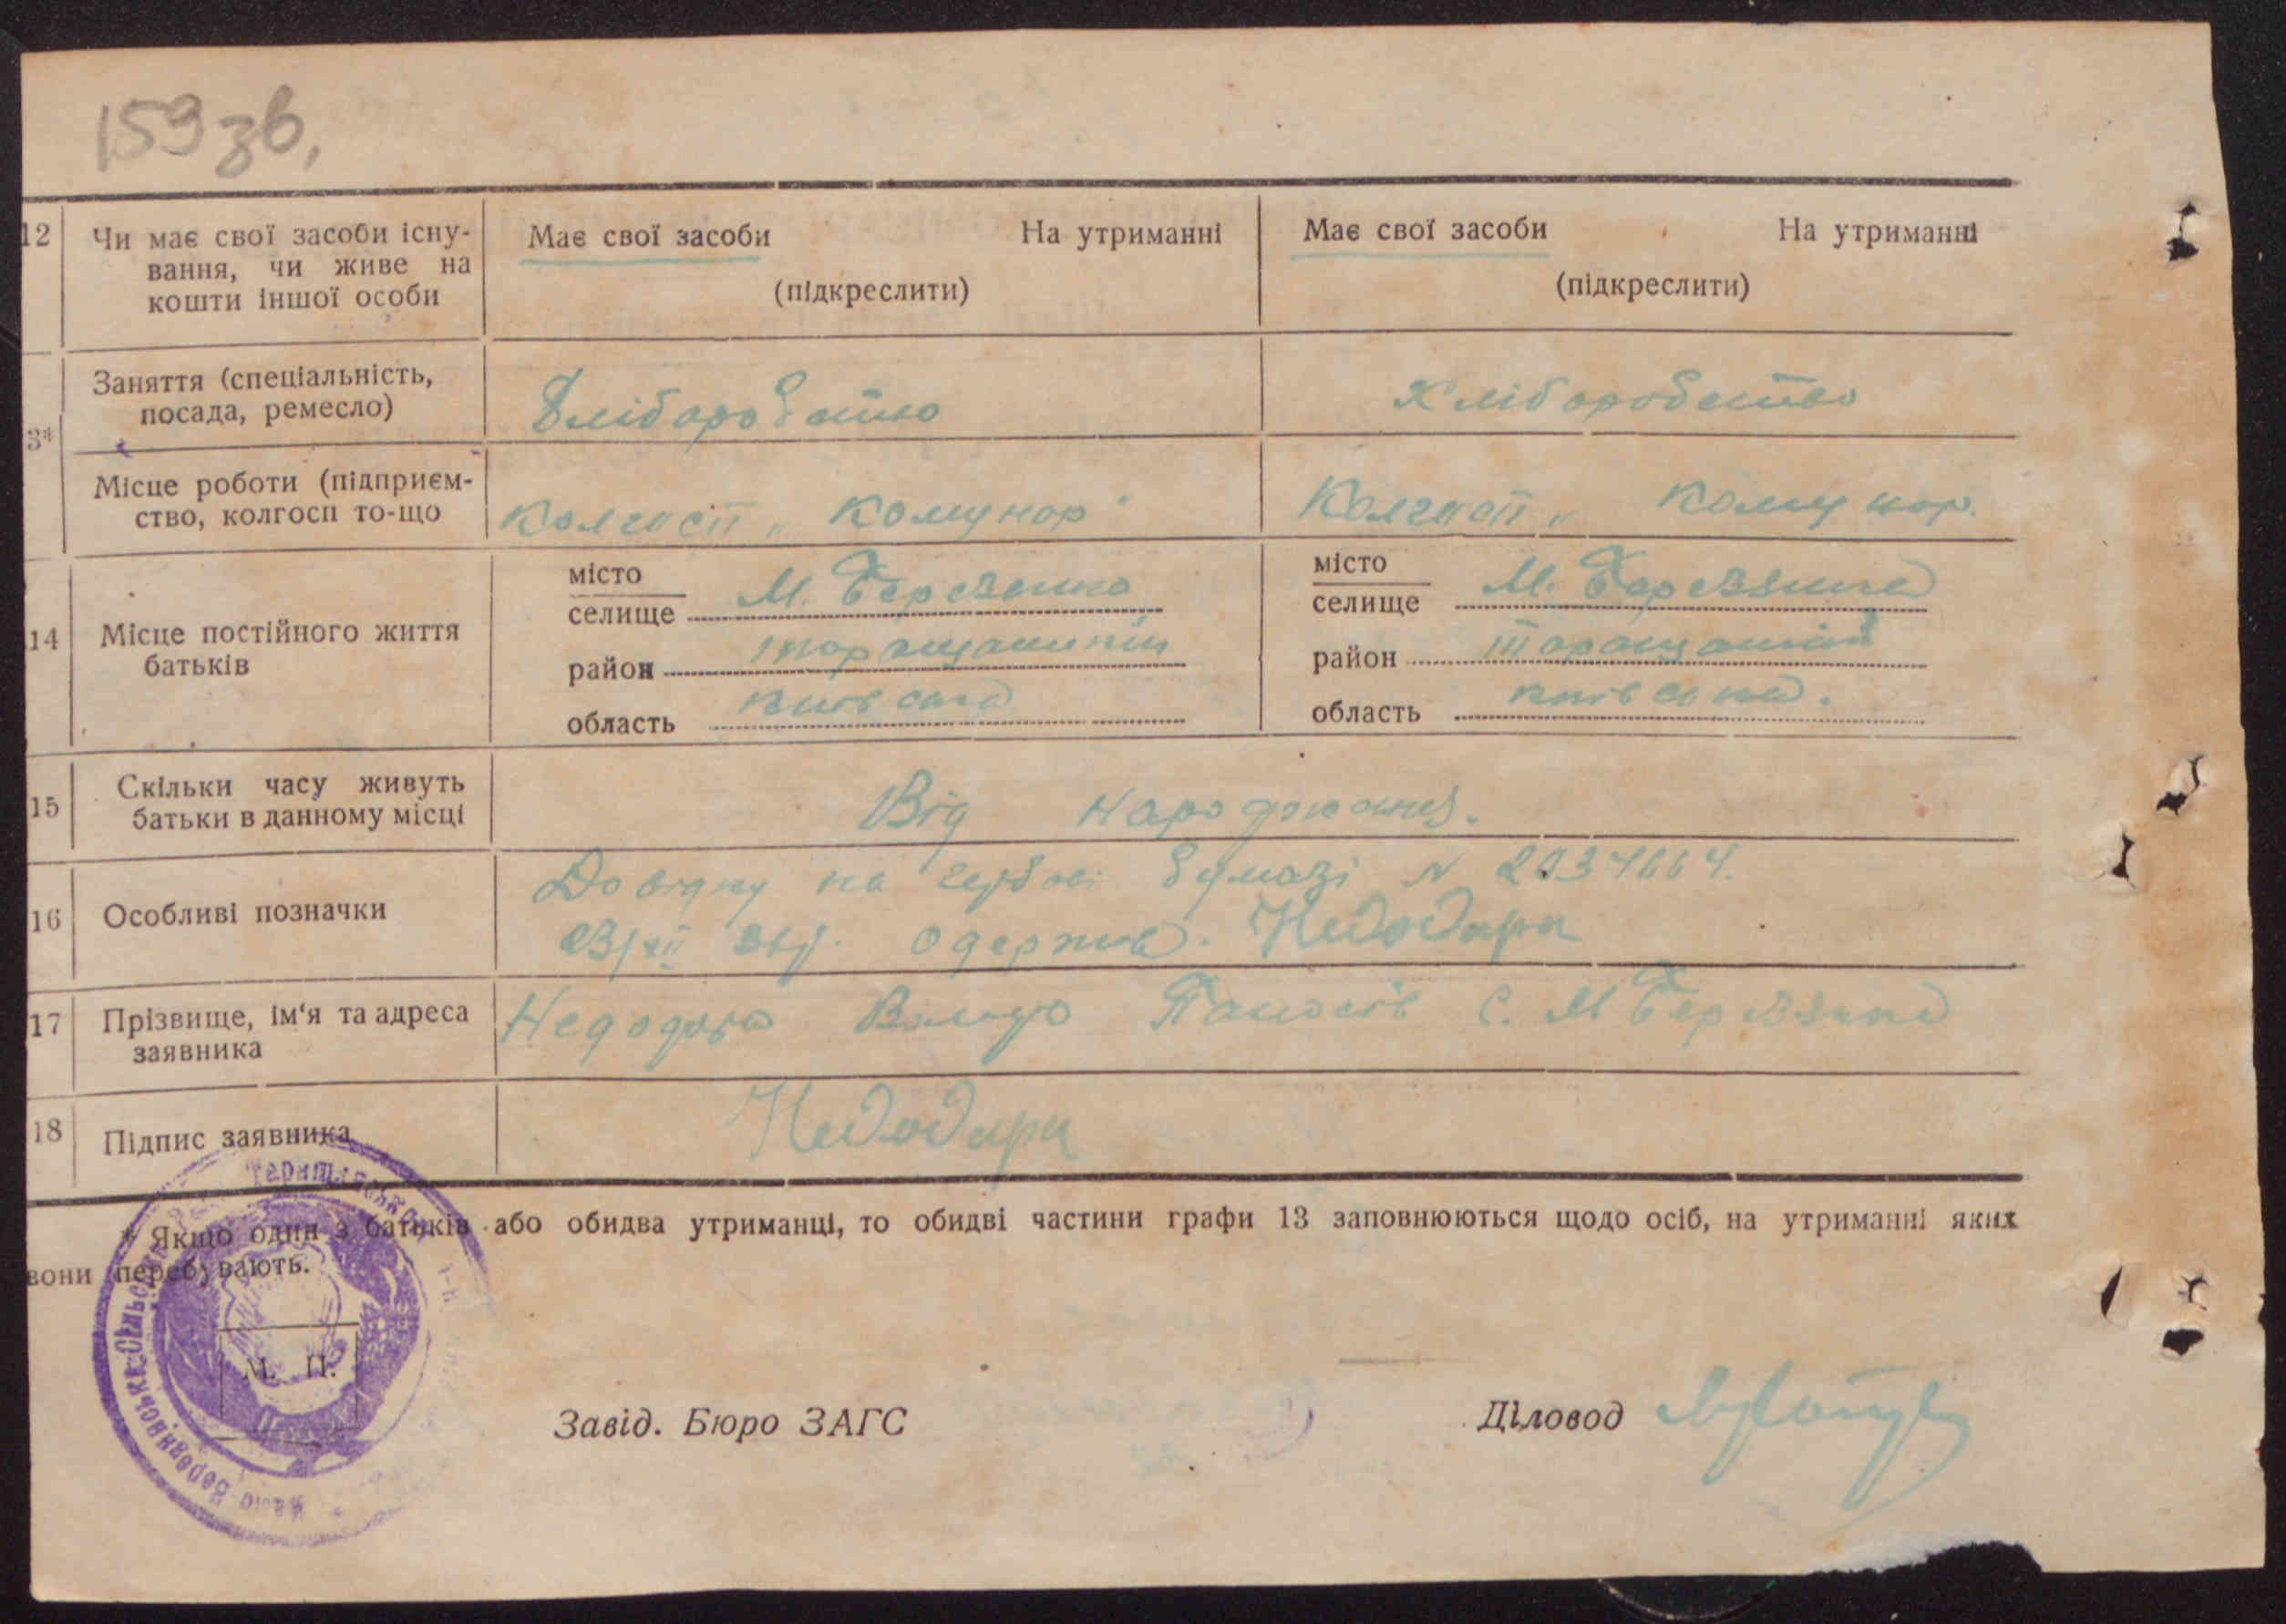 159 зв.
12 Чи має свої засоби існу-
вання, чи живе на
кошти іншої особи
Має свої засоби На утриманні
(підкреслити)
Має свої засоби На утриманні
(підкреслити)
Заняття (спеціальність,
посада, ремесло)
Хліборобство
Хліборобство
3*
Місце роботи (підприєм-
ство, колгосп то-що
Колгосп „Комунар"
Колгосп „Комунар.
14 Місце постійного життя
батьків
місто
селище М. Березянка
район Таращанський
область Київська
місто
селище М. Березянка
район Таращанський
область Київська.
15 Скільки часу живуть
батьки в данному місці
Від народження.
16 Особливі позначки
Довідку на гербові бумазі N 2034664.
23/XII 36р. одержив. Недодара
17 Прізвище, ім'я та адреса
заявника
Недодара Панасів С. М Березянка
18 Підпис заявника
Недодара
* Якщо один з батьків або обидва утриманці, то обидві частини графи 13 заповнюються щодо осіб, на утриманні яких
вони перебувають.
М. П.
Завід. Бюро ЗАГС
Діловод